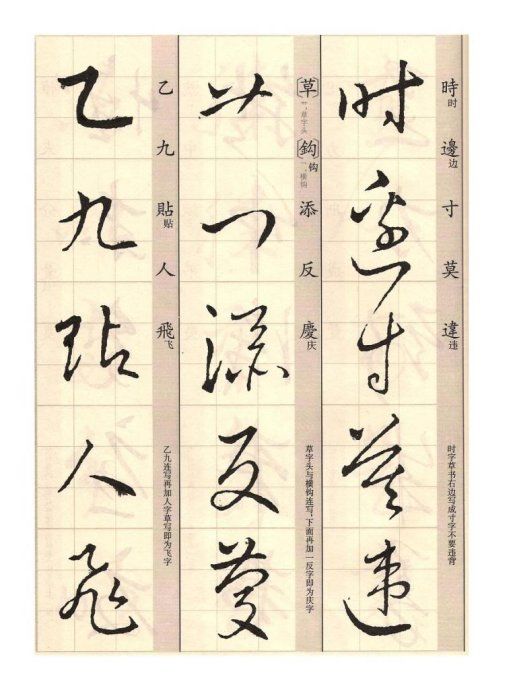 時时 邊边 寸 莫 違违
时 边 寸 莫 违
时字草书右边写成寸字不要违背
〔草〕艹,草字头 〔鈎〕钩 乛,横钩 添 反 慶庆
艹 乛 添 反 庆
草字头与横钩连写,下面再加一反字即为庆字
乙 九 貼贴 人 飛飞
乙 九 贴 人 飞
乙九连写再加人字草写即为飞字